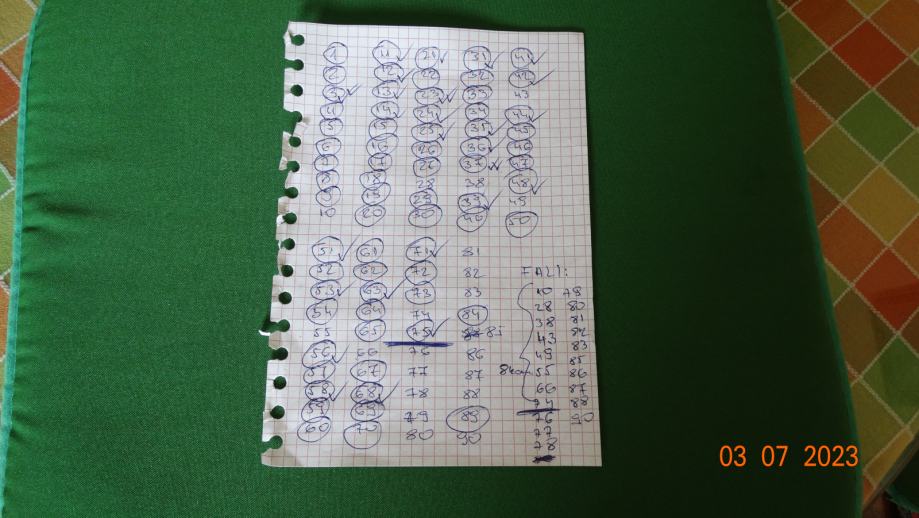 1 11 21 31 41
2 12 22 32 42
3 13 23 33 43
4 14 24 34 44
5 15 25 35 45
6 16 26 36 46
7 17 27 37 47
8 18 28 38 48
9 19 29 39 49
10 20 30 40 50
51 61 71 81
52 62 72 82
53 63 73 83
54 64 74 84
55 65 75 85
56 66 76 86
57 67 77 87
58 68 78 88
59 69 79 89
60 70 80 90
FALI:
10 79
28 80
38 81
43 82
49 83
55 85
66 86
74 87
76 88
77 90
78
03 07 2023